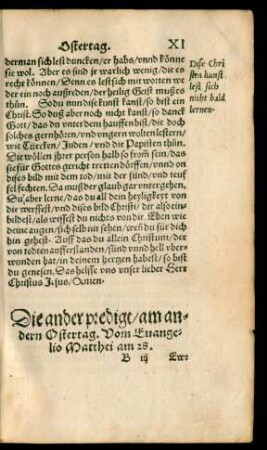 Ostertag. XI
derman sich lest duncken/ er habs/ vnnd könne
sie wol. Aber es sind je warlich wenig/ die es
recht können/ Denn es lest sich mit worten we-
der ein noch außreden/ der heilig Geist muß es
thůn. So du nun dise kunst kanst/ so bist ein
Christ. So du sß aber noch nicht kanst/ so danck
Gott/ das du vnter dem hauffen bist/ die doch
solches gern hören/ vnd vngern wolten lestern/
wie Türcken/ Juden/ vnd die Papisten thůn.
Die wöllen jhrer person halb so from sein/ das
sie für Gottes gericht tretten dörffen/ vnnd on
dises bild mit dem tod/ mit der sünd/ vnd teuf-
fel fechten. Da muß der glaub gar vntergehen.
Du aber lerne/ das du all dein heyligkeyt von
dir werffest/ vnd dises bild Christi/ dir also ein-
bildest/ als wissest du nichts von dir. Eben wie
deine augen/ sich selb nit sehen/ weß du für dich
hin gehest. Auff das du allein Christum/ der
von todten aufferstanden/ sünd vnnd hell vber-
wunden hat/ in deinem hertzen habest/ so bist
du genesen. Das helffe vns vnser lieber Herr
Christus Jesus/ Amen.
Dise Chri
sten kunst
lest sich
nicht bald
lernen.
Die ander predigt/ am an-
dern Ostertag. Vom Euange-
lio Matthei am 28.
B iij Ewr